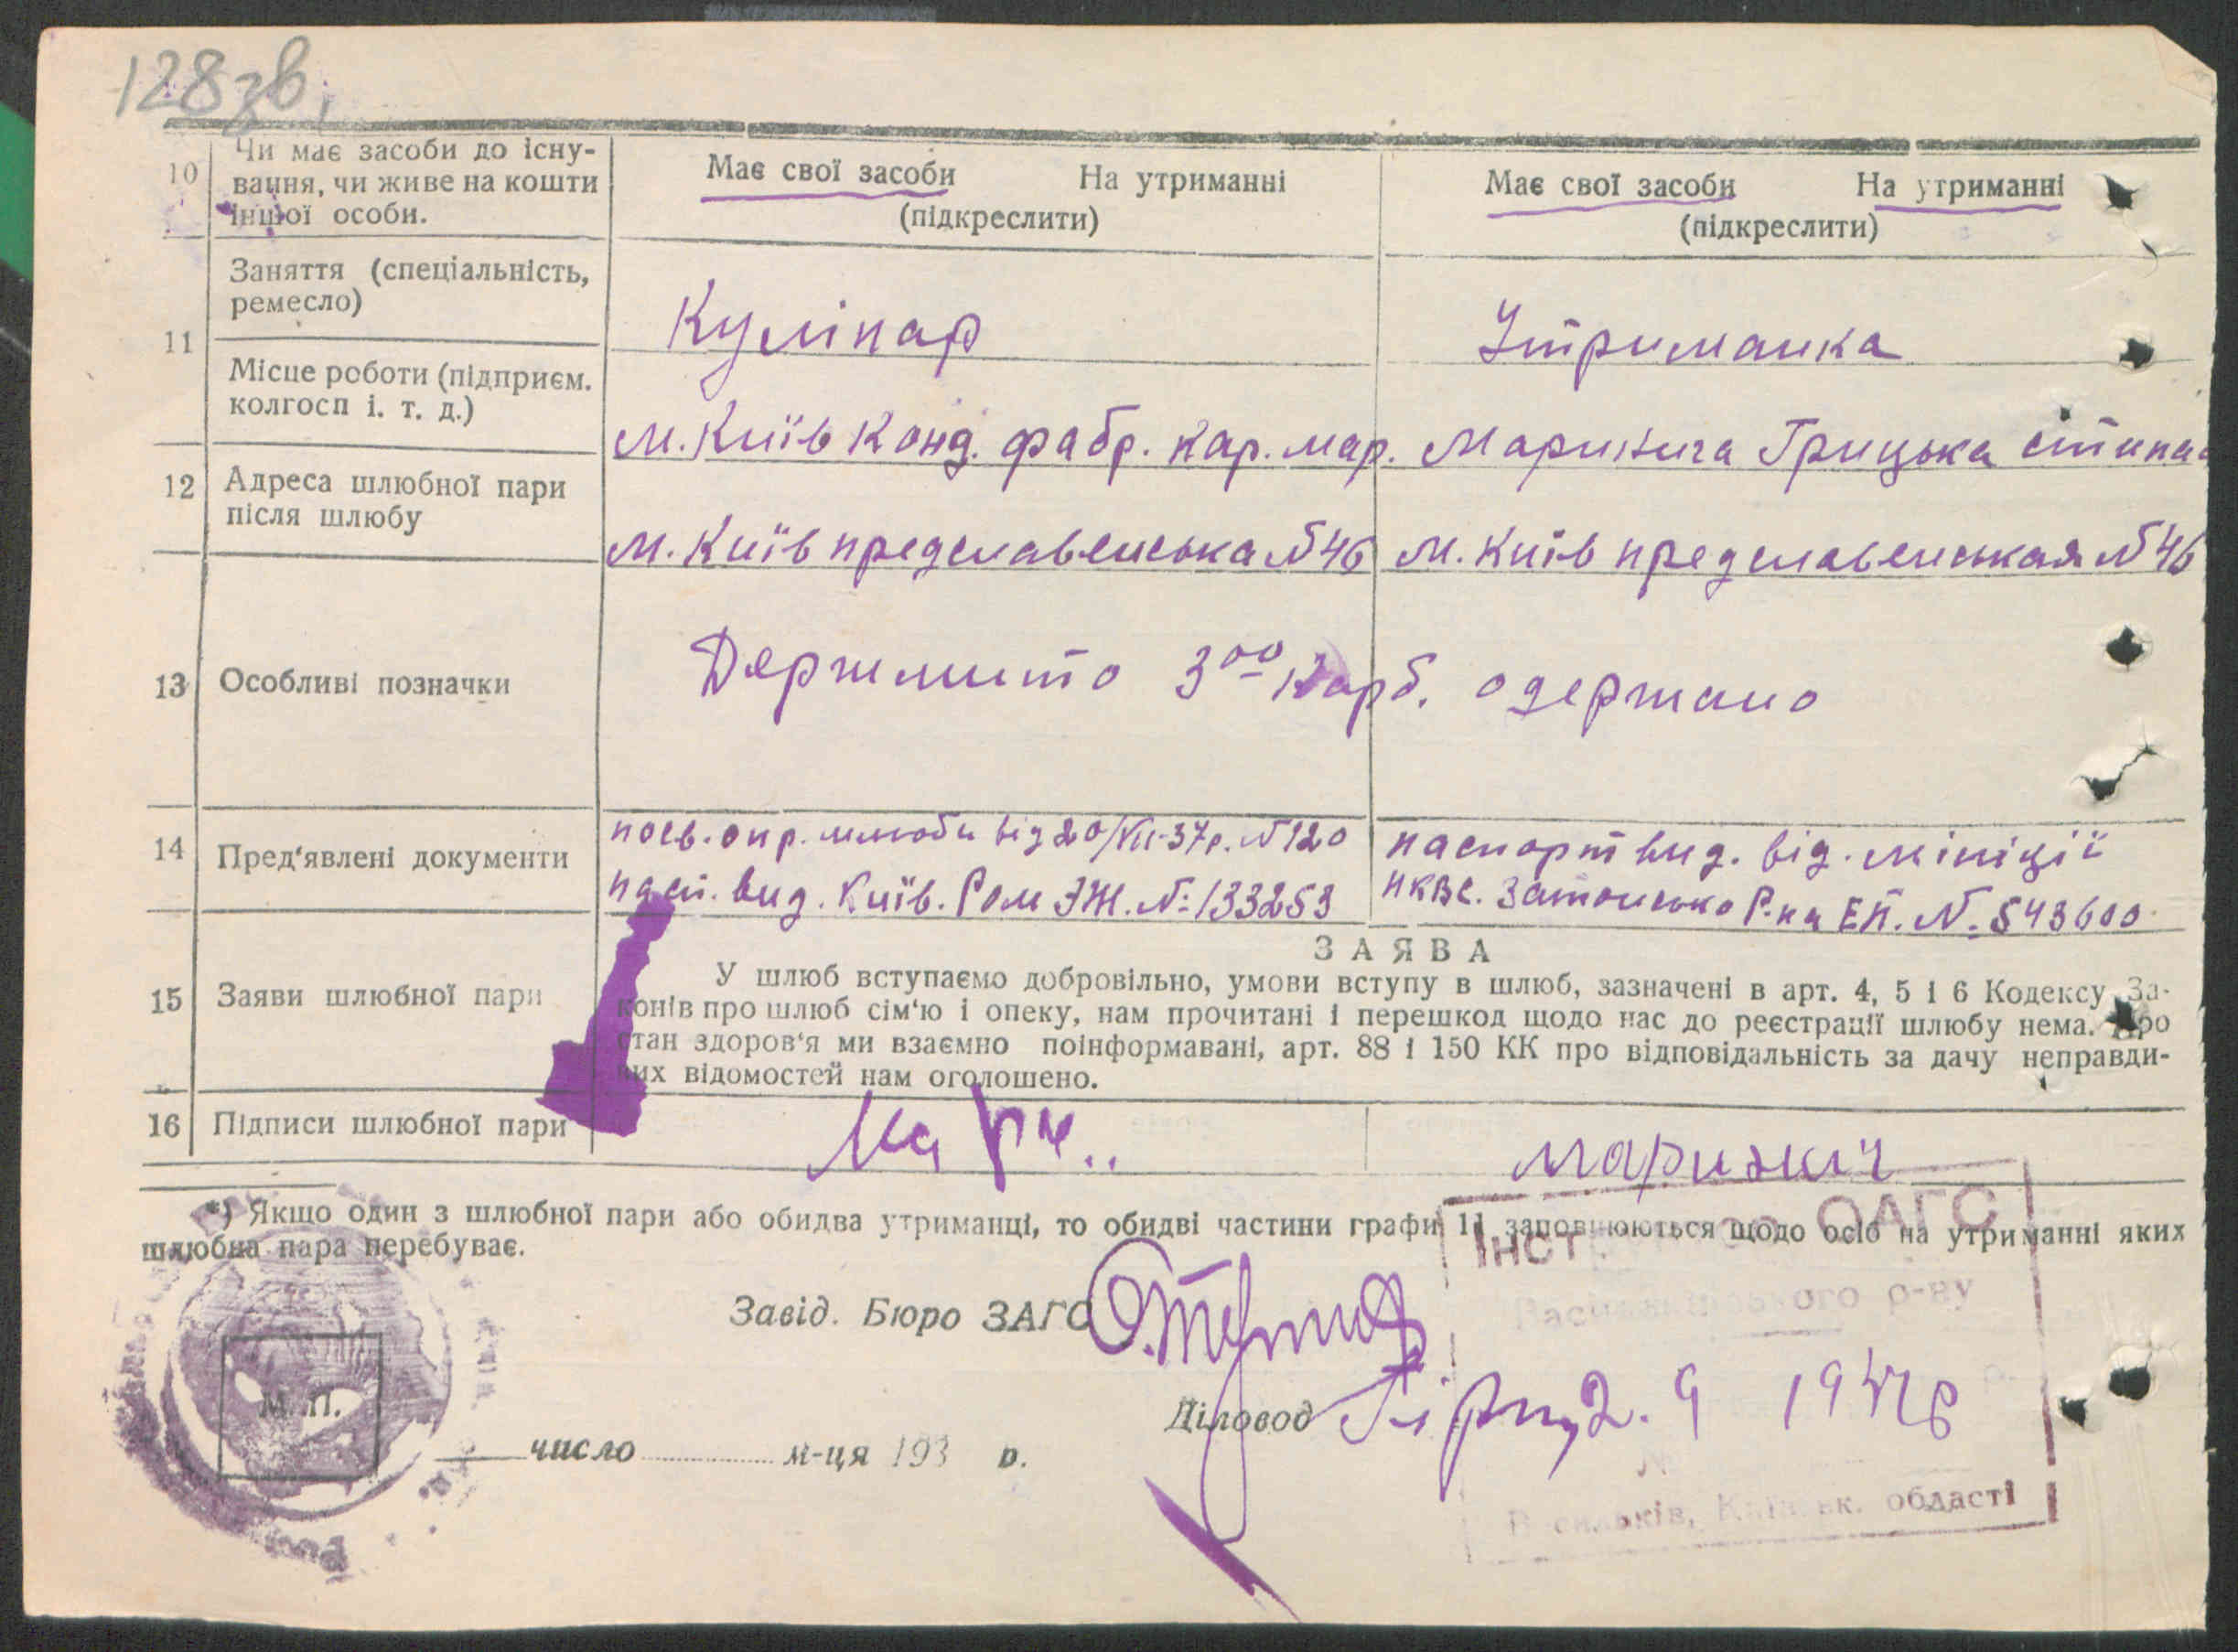 128зв.
10 Чи має засоби до існу-
вання, чи живе на кошти
іншої особи.
Має свої засоби На утриманні
(підкреслити)
Має свої засоби На утриманні
(підкреслити)
11 Заняття (спеціальність,
ремесло)
Кулінар
Утриманка
Місце роботи (підприєм.
колгосп і. т. д.)
м. Київ Конд. фабр. Кар. мар.
Грицька
12 Адреса шлюбної пари
після шлюбу
м. Київ предславенська №46
м. Київ предславенськая №46
13 Особливі позначки
Держмито 3 00 Карб. одержано
14 Пред'явлені документи
посв. о нр. шлюби від 20/VII-37р. №120
пасп. вид. Київ. Ром ЭЖ. №: 133253
паспорт вид. від. міліції
НКВС. Р-на ЕП. №: 543600
15 Заяви шлюбної пари
ЗАЯВА
У шлюб вступаємо добровільно, умови вступу в шлюб, зазначені в арт. 4, 5 і 6 Кодексу За-
конів про шлюб сім'ю і опеку, нам прочитані і перешкод щодо нас до реєстрації шлюбу нема. Про
стан здоров'я ми взаємно поінформавані, арт. 88 і 150 КК про відповідальність за дачу неправди-
вих відомостей нам оголошено.
16 Підписи шлюбної пари
*) Якщо один з шлюбної пари або обидва утриманці, то обидві частини графи 11 заповнюються щодо осіб на утриманні яких
шлюбна пара перебуває.
ОАГС
ого р-ну
Завід. Бюро ЗАГС
Діловод
2. 9
М. П.
число м-ця 193 р.
області